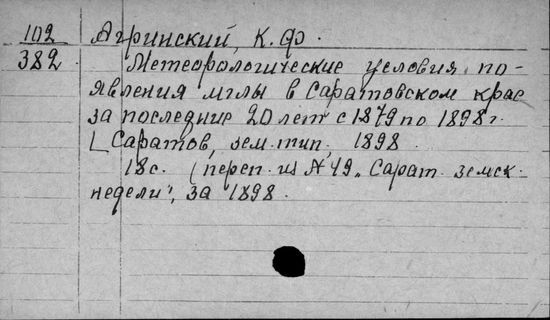 102
382
Агринский, К. Ф.
Метеорологические условия по-
явления мглы в Саратовском крае
за последние 20 лет с 1879 по 1898 г.
[Саратов, зем. тип. 1898.
18 с. (переп. из № 49 „Сарат. земск.
недели", за 1898.